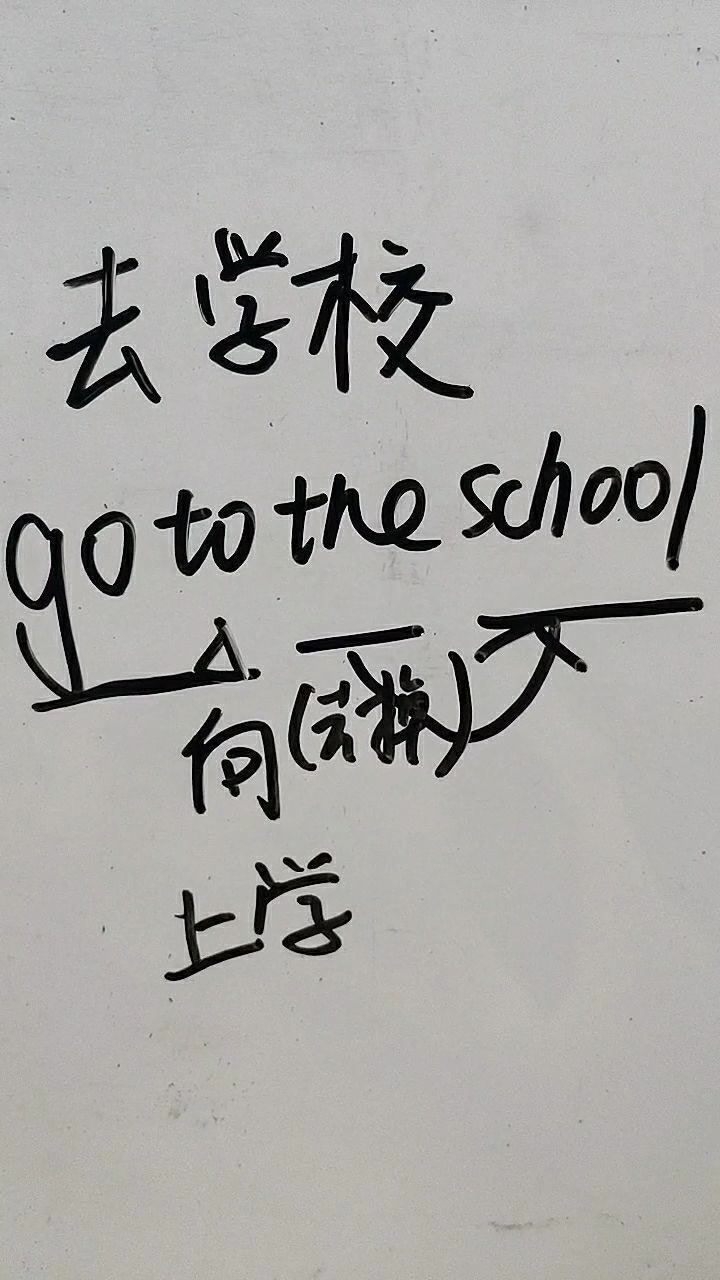 去学校
go to the school
向(去掉)
上学